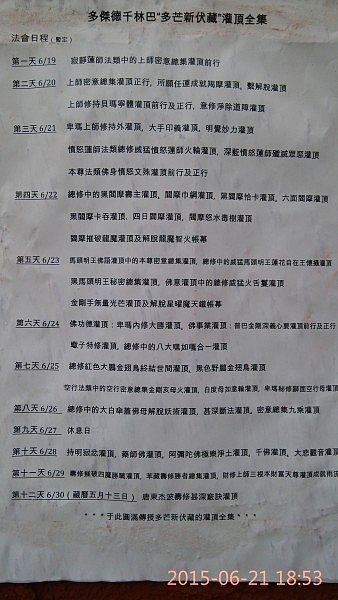 多傑德千林巴"多芒新伏藏"灌頂全集
法會日程（暫定）
第一天 6/19 寂靜蓮師法類中的上師密意總集灌頂前行
第二天 6/20 上師密意總集灌頂正行，所願任運成就羯摩灌頂，繫解脫灌頂
上師修持貝瑪寧體灌頂前行及正行，意修淨除道障灌頂
第三天 6/21 卑瑪上師修持外灌頂，大手印義灌頂，明覺妙力灌頂
憤怒蓮師法類總修威猛憤怒蓮師火輪灌頂，深藍憤怒蓮師殲滅眾惡灌頂
本尊法類佛身憤怒文殊灌頂前行及正行
第四天 6/22 總修中的黑閻摩壽主灌頂，閻摩巾網灌頂，黑閻摩恰卡灌頂，六面閻摩灌頂
黑閻摩卡吞灌頂，四日閻摩灌頂，閻摩怒水毒樹灌頂
閻摩摧破龍魔灌頂及解脫龍魔智火帳幕
第五天 6/23 馬頭明王佛語灌頂中的本尊密意總集灌頂，總修中的威猛馬頭明王蓮花自在王懷攝灌頂
黑馬頭明王秘密總集灌頂，佛意灌頂中的總修威猛火舌鬘灌頂
金剛手無量光芒灌頂及解脫星曜魔天鐵帳幕
第六天 6/24 佛功德灌頂：卑瑪內修大勝灌頂，佛事業灌頂：普巴金剛深義心要灌頂前行及正行
蠍子特修灌頂，總修中的八大嘿如嘎合一灌頂
第七天 6/25 總修紅色大鵬金翅鳥終結世間灌頂，黑色野鵬金翅鳥灌頂
空行法類中的空行密意總集金剛亥母火灌頂，白度母如意輪灌頂，卑瑪秘修獅面空行母灌頂
第八天 6/26 總修中的大白傘蓋佛母解脫妖術灌頂，甚深斷法灌頂，密意總集九乘灌頂
第九天 6/27 休息日
第十天 6/28 持明寂忿灌頂，藥師佛灌頂，阿彌陀佛極樂淨土灌頂，千佛灌頂，大悲觀音灌頂
第十一天 6/29 壽修摧破四魔勝職灌頂，苯藏壽修勝者總集灌頂，財修上師三根本財富天尊灌頂成就雨流
第十二天 6/30（藏曆五月十三日） 唐東杰波壽修甚深竅訣灌頂
***于此圓滿傳授多芒新伏藏的灌頂全集***
2015-06-21 18:53